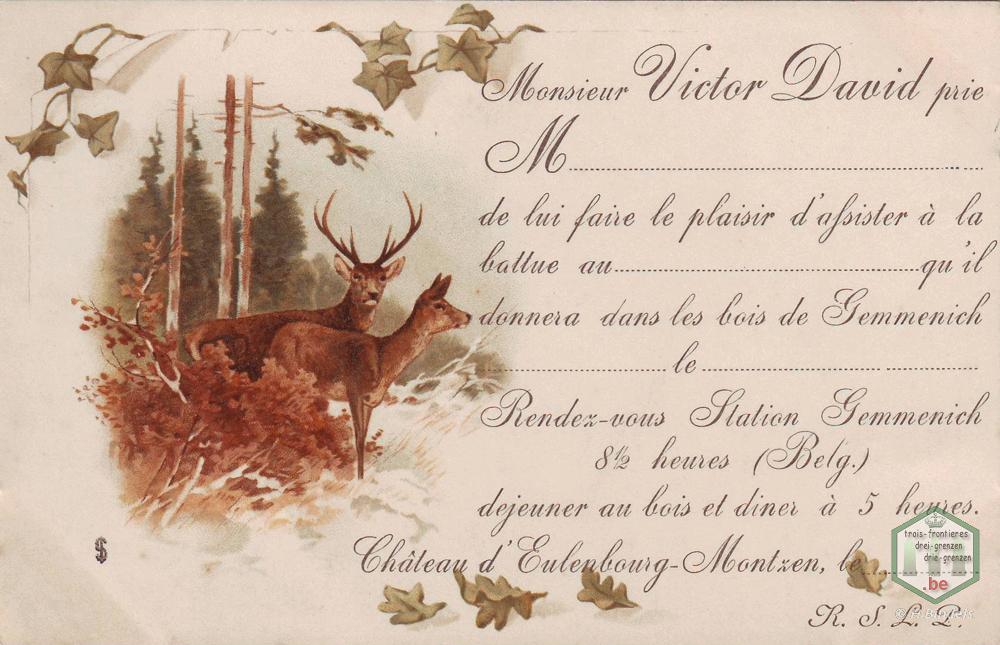 Monsieur Victor David prie
M
de lui faire le plaisir d'assister à la
battue au qu'il
donnera dans les bois de Gemmenich
le
Rendez-vous Station Gemmenich
8½ heures (Belg.)
dejeuner au bois et diner à 5 heures.
Château d'Eulenbourg-Montzen, le
R. S. L. P.
trois-frontieres
drei-grenzen
drie-grenzen
.be